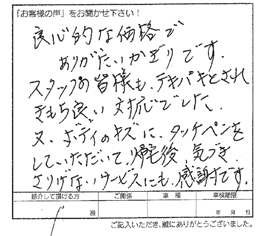 「お客様の声」をお聞かせ下さい！
良心的な価格で
ありがたいかぎりです。
スタッフの皆様も、テキパキとされ
きもち良い対応でした。
又、ボディのキズに、タッチペンを
していただいて、帰宅後、気づき
さりげないサービスにも、感謝です。
紹介して頂ける方 ご関係 車種 車検期限
様 年 月 日
ご記入いただき、誠にありがとうございました。